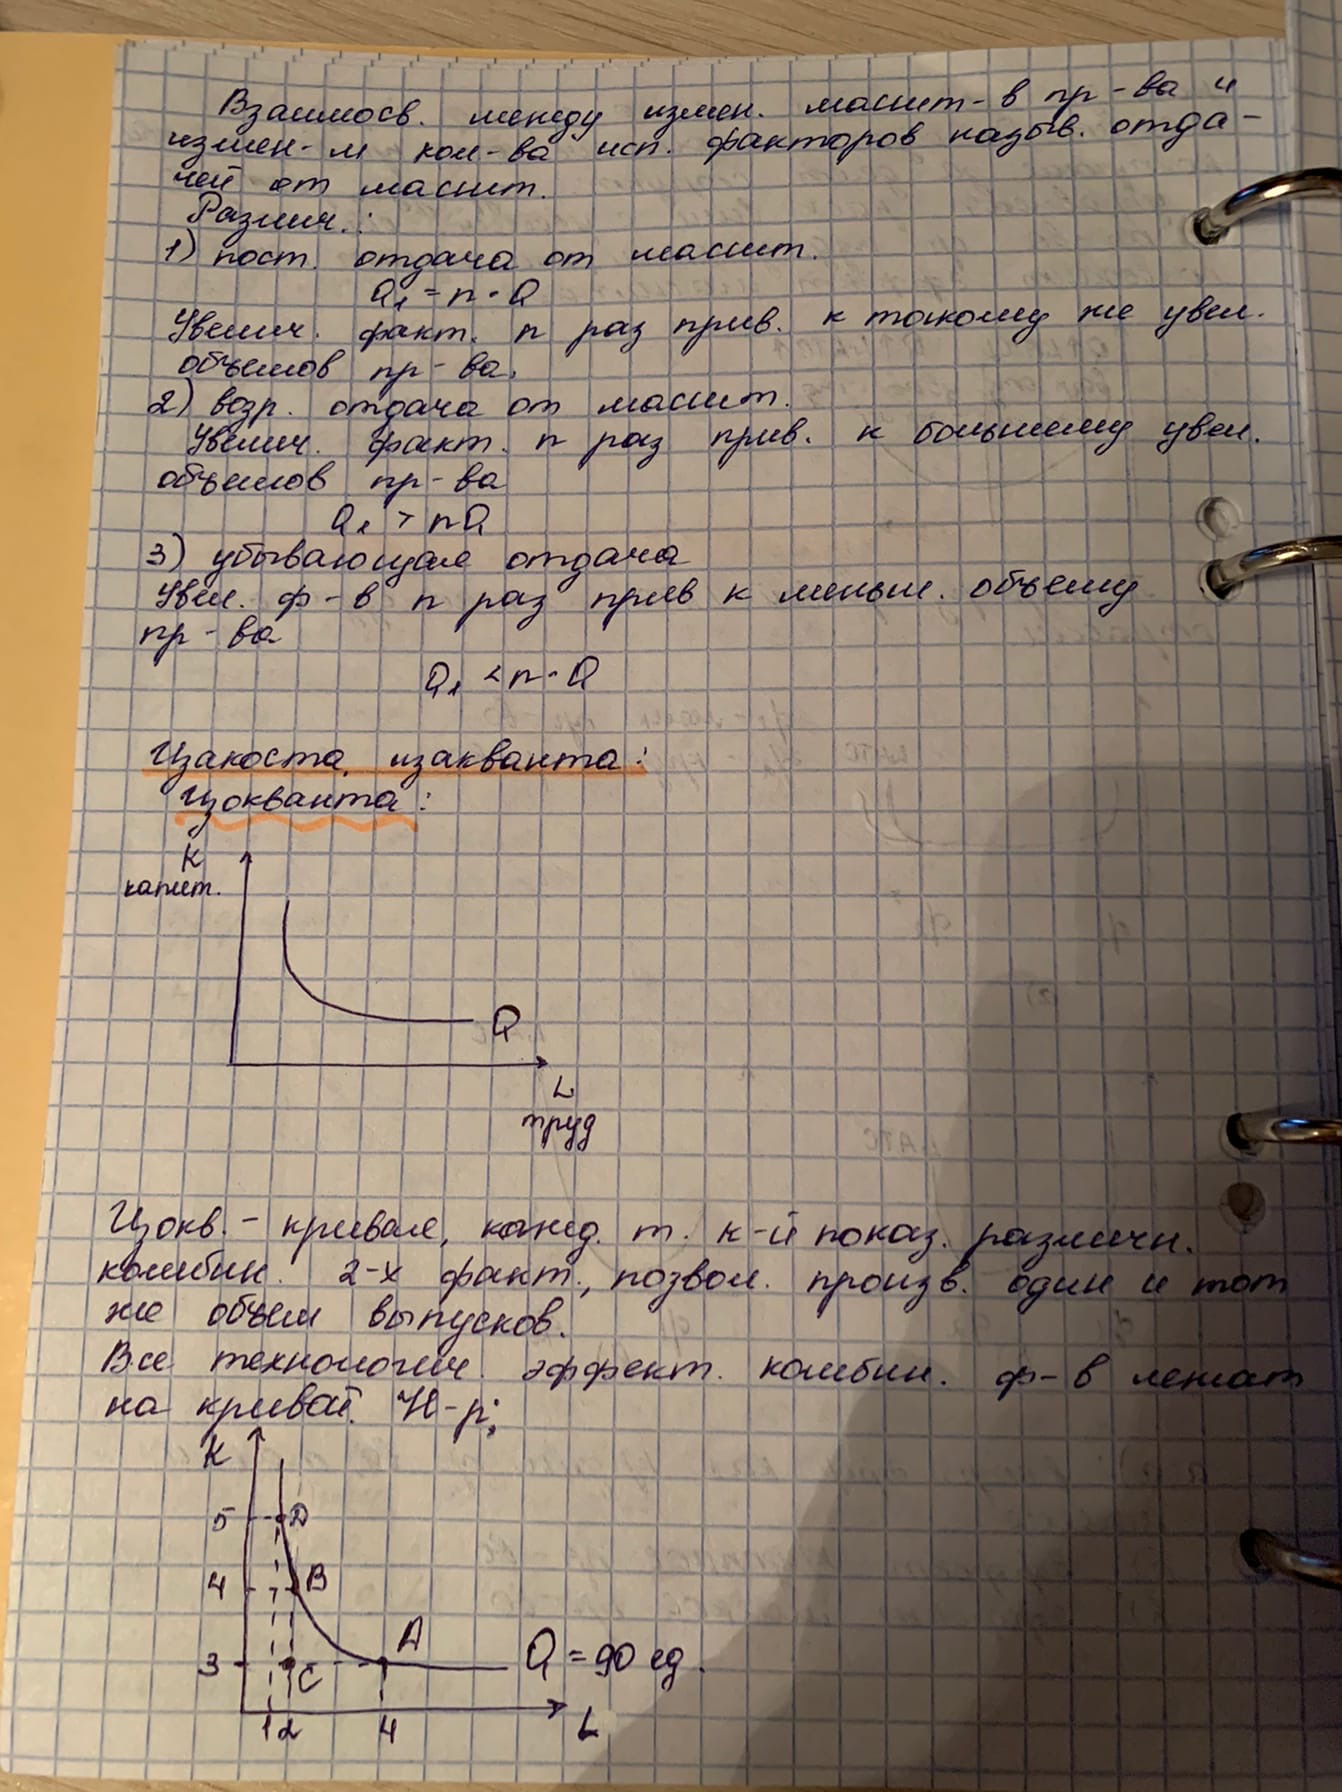 Взаимосв. между измен. масшт-в пр-ва и
измен-м кол-ва исп. факторов назыв. отда-
чей от масшт.
Различ.:
1) пост. отдача от масшт.
Q₁ = n · Q
Увелич. факт. n раз прив. к такому же увел.
объемов пр-ва.
2) возр. отдача от масшт.
Увелич. факт. n раз прив. к большему увел.
объемов пр-ва
Q₁ > nQ
3) убывающая отдача
Увел. ф-в n раз прив к меньш. объему
пр-ва
Q₁ < n · Q
Изакоста, изакванта:
Изокванта:
K
капит.
Q
L
труд
Изокв. - кривая, кажд. т. к-й показ. различн.
комбин. 2-х факт., позвол. произв. один и тот
же объем выпусков.
Все технологич. эффект. комбин. ф-в лежат
на кривой. Н-р:
K
5 D
4 B
A
3 C Q = 90 ед.
1 2 4 L